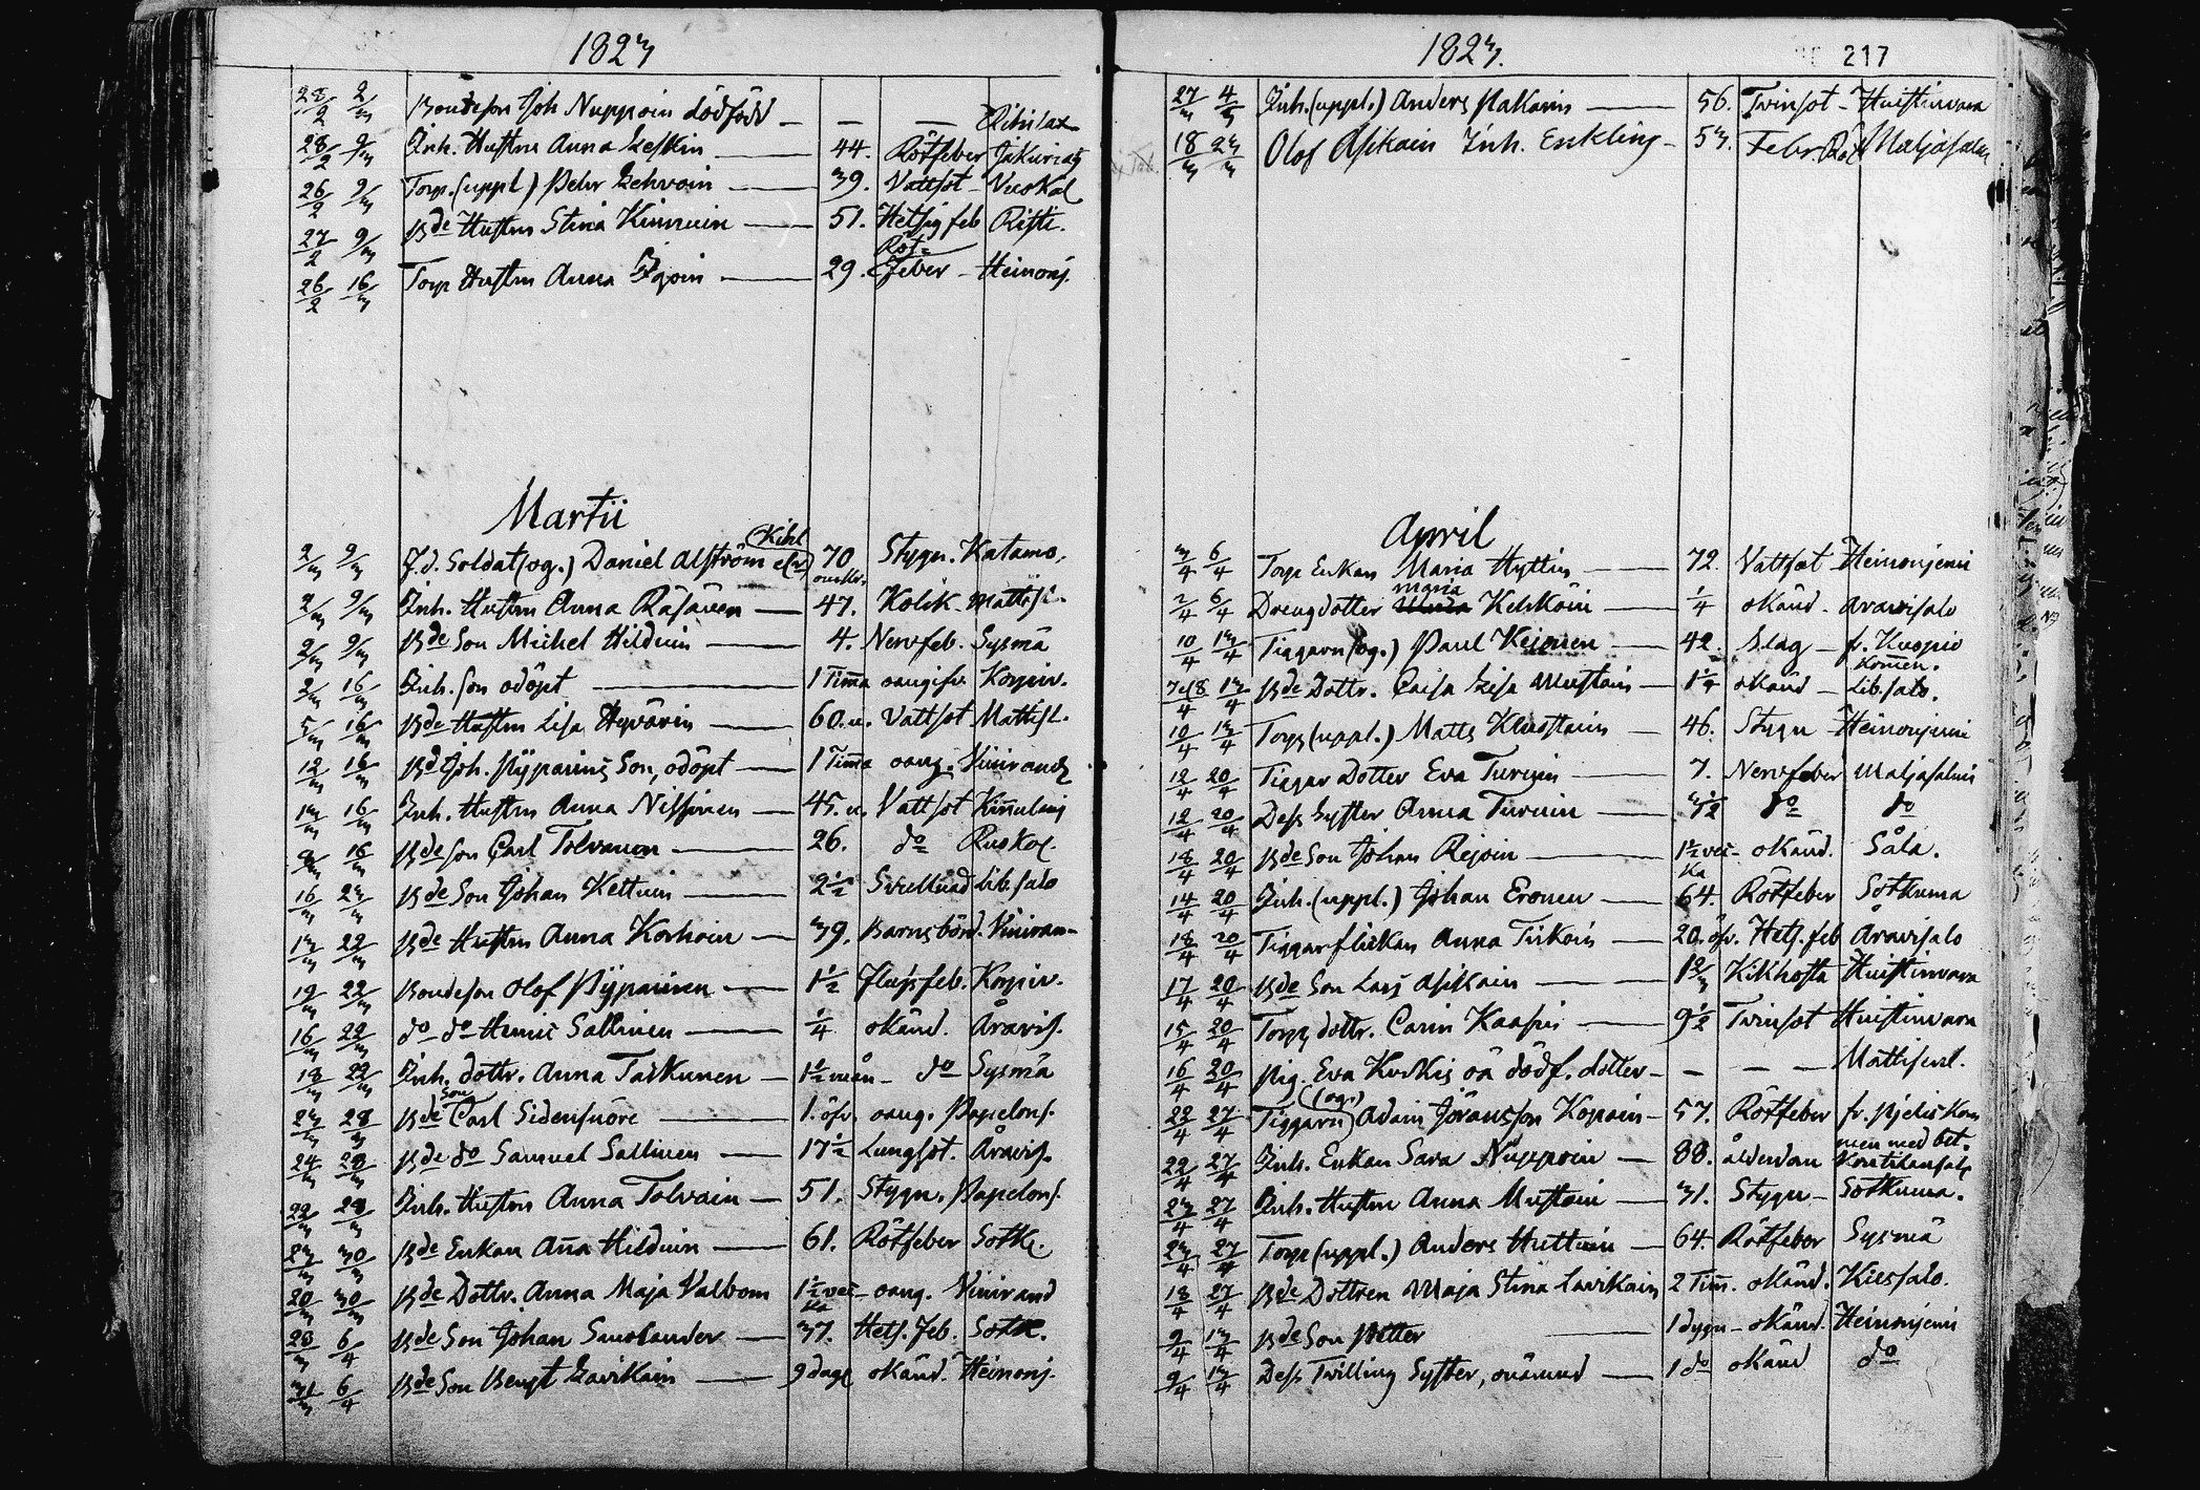 1823
28/2 2/3 Bondeson Joh Nuppoin dödfödd — — — Rihilax
28/2 9/3 Inh. Hustru Anna Leskin — 44. Rötfeber Jakuriax
26/2 9/3 Torp. (uppl) Pehr Lehvoin — 39. Vattsot Vuskal
27/2 9/3 Bde Hustru Stina Kinnuin — 51. Hetsig feb Risti.
26/2 16/3 Torp Hustru Anna — 29. Röt= feber — Heinonj.
Martii
2/3 9/3 F.d. Soldat (og.) Daniel Alström Kihl 70 Stygn. Katamo.
2/3 9/3 Inh. Hustru Anna Räsänen — 47. Kolik. Mattisl.
2/3 9/3 Bde Son Michel Hilduin — 4. Nervfeb. Sysmä
2/3 16/3 Inh. son odöpt — 1 Timma oangifv. Korpiv.
5/3 16/3 Bde Hustru Lisa Hyvärin — 60. u. Vattsot Mattisl.
12/3 16/3 Bd Joh. Pÿparins Son, odöpt — 1 Timma oang. Viinirand
13/3 16/3 Inh. Hustru Anna Nissinen — 45. u. Vattsot
16/3 Bde son Carl Tolvanen — 26. do Ruskol.
16/3 23/3 Bde Son Johan Kettuin — 2 1/2 Svullnad Lib. salo
13/3 22/3 Bde Hustru Anna Korhoin — 39. Barnsbörd. Viiniran-
19/3 22/3 Bondeson Olof Pÿparinen — 1 1/2 Flussfeb. Korpiv.
16/3 22/3 do do Henric Sallinen — 1/4 okänd. Åravis.
18/3 22/3 Inh. dottr. Anna Taskunen — 1 1/2 mån — do Sysmä
23/3 28/3 Bde son Carl Sidensnöre — 1. öfv. oang. Papelons.
24/3 28/3 Bde do Samuel Sallinen — 17 1/2 Lungsot. Åravis.
22/3 28/3 Inh. Hustru Anna Tolvain — 51. Stygn. Papelons.
23/3 30/3 Bde Enkan Aña Hilduin — 61. Rötfeber Sotk.
20/3 30/3 Bde Dottr. Anna Maja Valbom 1 1/2 vec- ka oang. Viinirand
28/3 6/4 Bde Son Johan Smolander — 37. Hets. feb. Sotk.
31/3 6/4 Bde Son Bengt Lavikain — 9 dagr okänd. Heinonj.
1823. 217
27/3 4/3 Inh. (uppl.) Anders Makarin — 56. Tvinsot — Huistinvara
18/3 23/3 Olof Asikain Inh. Enkling — 53. Feber Röt Maljasalm
April
3/4 6/4 Torp Enkan Maria Hyttin — 72. Vattsot Heinonjemi
2/4 6/4 Drengdotter Maria Kekkoin — 1/4 okänd. Aravisalo
10/4 13/4 Tiggarn (og.) Paul Keionen — 42. Slag — fr. Kuopio kommen.
7 el 8/4 13/4 Bde Dottr. Caisa Lisa Mustoin — okänd — Lib. salo.
10/4 13/4 Torp (uppl.) Matts — 46. Stygn — Heinonjemi
12/4 20/4 Tiggar Dotter Eva Turuin — 7. Nervfeber Maljasalmi
12/4 20/4 Dess Syster Anna Turuin — do do
18/4 20/4 Bde Son Johan Rejoin — 1 1/2 vec- ka okänd. Såla.
14/4 20/4 Inh. (uppl.) Johan Eronen — 64. Rötfeber Sotkuma
18/4 20/4 Tiggarflickan Anna Tirkoin — 20. öfv. Hets. feb Aravisalo
17/4 20/4 Bde Son Lars Asikain — 1 2/3 Kikhosta Huistinvara
15/4 20/4 Torp. dottr. Carin Kaasin — 9 1/2 Tvinsot Huistinvara
16/4 20/4 Pig. Eva Kurkis oä dödf. dotter — — — — Mattisenl.
22/4 27/4 Tiggarn (og.) Adam Jöransson Kopoin — 57. Rötfeber fr. Pjelis kom
22/4 27/4 Inh. Enkan Sara Nuppoin — 88. ålderdom men med bet. Kontilansalz
23/4 27/4 Inh. Hustru Anna Mustoin — 31. Stygn — Sotkuma.
23/4 27/4 Torp (uppl.) Anders Huttuin — 64. Rötfeber Sysmä
18/4 27/4 Bde Dottren Maja Stina Lavikain 2 Tim. okänd. Kiessalo.
9/4 13/4 Bde Son Petter — 1 dygn — okänd. Heinonjemi
9/4 13/4 Dess Tvilling Syster, onämnd — 1 do okänd do